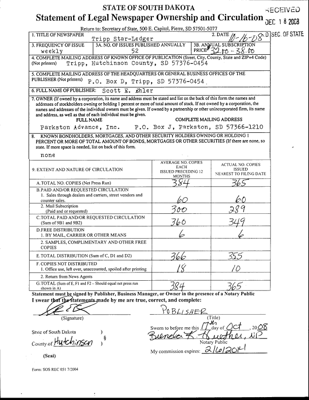 STATE OF SOUTH DAKOTA
Statement of Legal Newspaper Ownership and Circulation
RECEIVED
DEC 18 2008
SEC OF STATE
Return to: Secretary of State, 500 E. Capitol, Pierre, SD 57501-5077
1. TITLE OF NEWSPAPER
Tripp Star-Ledger
2. DATE
10-16-08
3. FREQUENCY OF ISSUE
weekly
3A. NO. OF ISSUES PUBLISHED ANNUALLY
52
3B. ANNUAL SUBSCRIPTION
PRICE
4. COMPLETE MAILING ADDRESS OF KNOWN OFFICE OF PUBLICATION (Street, City, County, State and ZIP+4 Code)
(Not printers) Tripp, Hutchinson County, SD 57376-0454
5. COMPLETE MAILING ADDRESS OF THE HEADQUARTERS OR GENERAL BUSINESS OFFICES OF THE
PUBLISHER (Not printers) P.O. Box D, Tripp, SD 57376-0454
6. FULL NAME OF PUBLISHER: Scott E. Ehler
7. OWNER (If owned by a corporation, its name and address must be stated and also the names and
addresses of stockholders owning or holding 1 percent or more of total amount of stock. If not owned by a corporation, the
names and addresses of the individual owners must be given. If owned by a partnership or other unincorporated firm, its name
and address, as well as that of each individual must be given.
FULL NAME
COMPLETE MAILING ADDRESS
Parkston Advance, Inc.
P.O. Box J, Parkston, SD 57366-1210
8. KNOWN BONDHOLDERS, MORTGAGES, AND OTHER SECURITY HOLDERS OWNING OR HOLDING 1
PERCENT OR MORE OF TOTAL AMOUNT OF BONDS, MORTGAGES OR OTHER SECURITIES (If there are none, so
state. If more space is needed, list on back of this form.
none
9. EXTENT AND NATURE OF CIRCULATION
AVERAGE NO. COPIES
EACH
ISSUED PRECEDING 12
MONTHS
ACTUAL NO. COPIES
ISSUED
NEAREST TO FILING DATE
A. TOTAL NO. COPIES (Net Press Run)
384
365
B. PAID AND/OR REQUESTED CIRCULATION
1. Sales through dealers and carriers, street vendors and
counter sales.
60
60
2. Mail Subscription
(Paid and or requested)
300
289
C. TOTAL PAID AND/OR REQUESTED CIRCULATION
(Sum of 9B1 and 9B2)
360
349
D. FREE DISTRIBUTION
1. BY MAIL, CARRIER OR OTHER MEANS
6
6
2. SAMPLES, COMPLIMENTARY AND OTHER FREE
COPIES
E. TOTAL DISTRIBUTION (Sum of C, D1 and D2)
366
355
F. COPIES NOT DISTRIBUTED
1. Office use, left over, unaccounted, spoiled after printing
18
10
2. Return from News Agents
G. TOTAL (Sum of E, F1 and F2 - Should equal net press run
shown in A)
384
365
Statement must be signed by Publisher, Business Manager, or Owner in the presence of a Notary Public
I swear that the statements made by me are true, correct, and complete:
PUBLISHER
(Signature)
(Title)
State of South Dakota )
County of Hutchinson )
(Seal)
Sworn to before me this 17th day of Oct 2008
Notary Public
My commission expires:
Form: SOS REC 051 7/2004